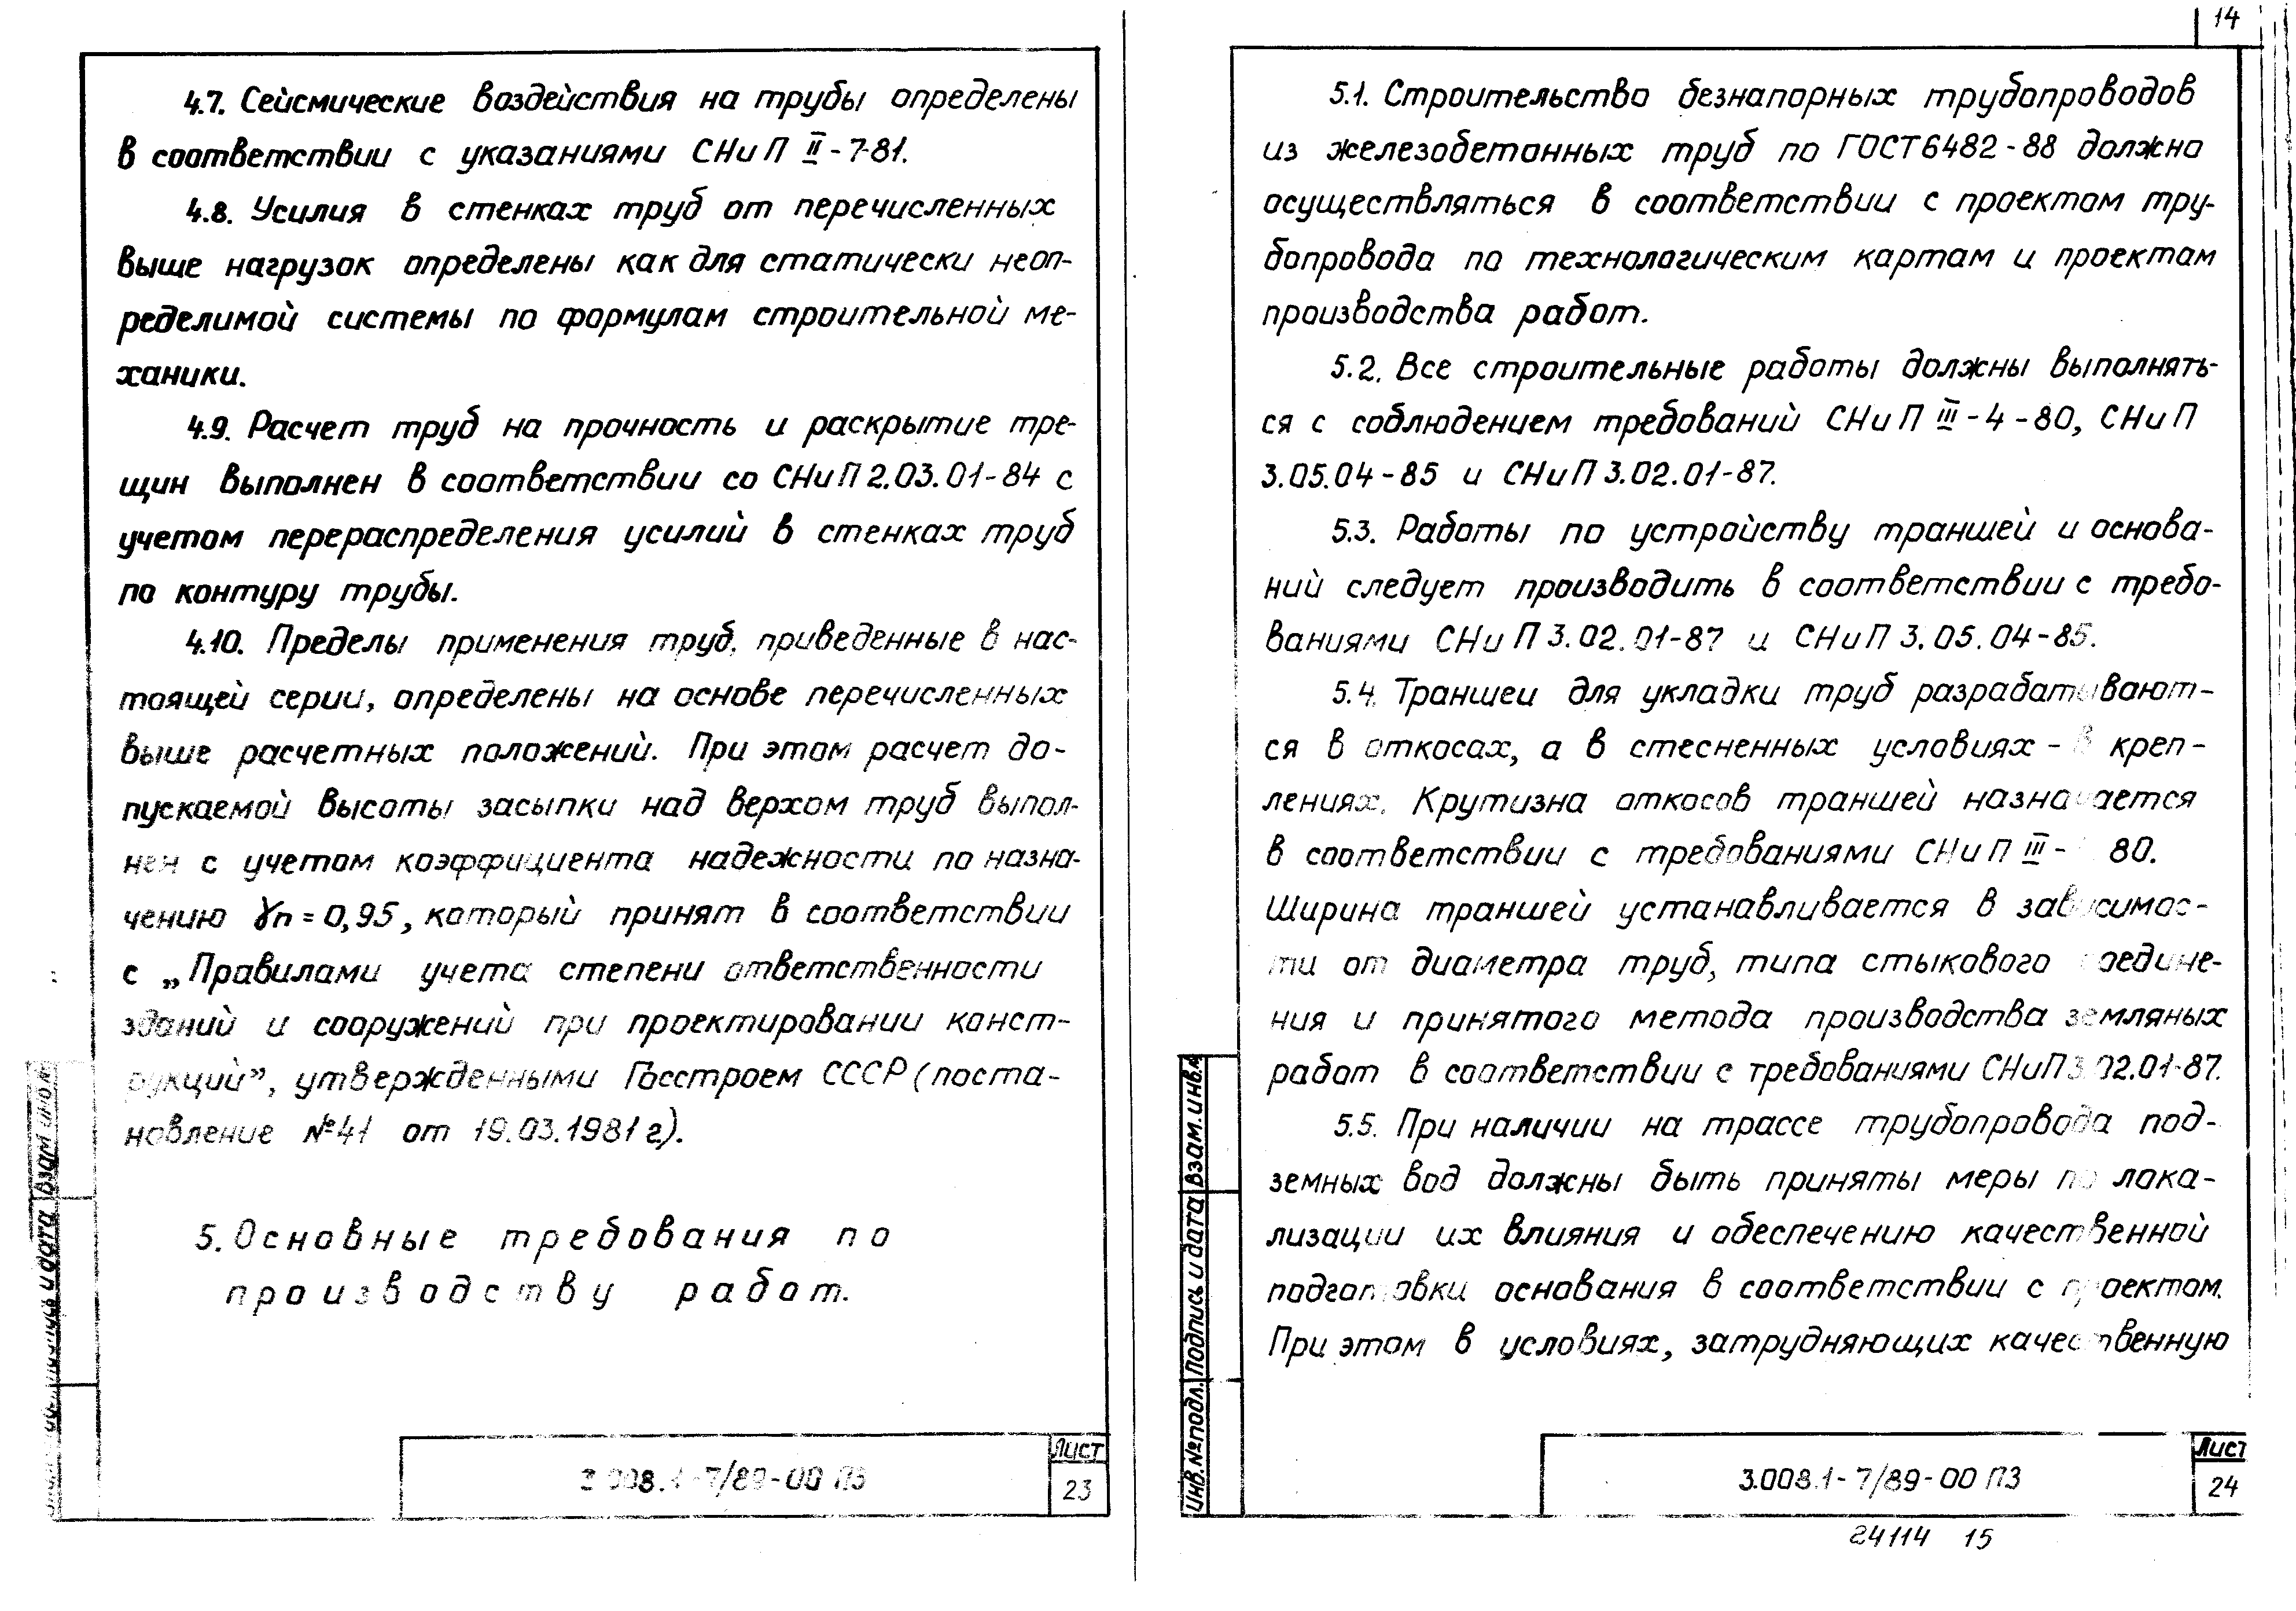 4.7. Сейсмические воздействия на трубы определены
в соответствии с указаниями СНиП II-7-81.
4.8. Усилия в стенках труб от перечисленных
выше нагрузок определены как для статически неоп-
ределимой системы по формулам строительной ме-
ханики.
4.9. Расчет труб на прочность и раскрытие тре-
щин выполнен в соответствии со СНиП 2.03.01-84 с
учетом перераспределения усилий в стенках труб
по контуру трубы.
4.10. Пределы применения труб, приведенные в нас-
тоящей серии, определены на основе перечисленных
выше расчетных положений. При этом расчет до-
пускаемой высоты засыпки над верхом труб выпол-
нен с учетом коэффициента надежности по назна-
чению γп = 0,95, который принят в соответствии
с „Правилами учета степени ответственности
зданий и сооружений при проектировании конст-
рукций", утвержденными Госстроем СССР (поста-
новление №41 от 19.03.1981 г.).
5. Основные требования по
производству работ.
Взам. инв. №
Подпись и дата
3.008.1-7/89-00 ПЗ
Лист
23
14
5.1. Строительство безнапорных трубопроводов
из железобетонных труб по ГОСТ 6482-88 должно
осуществляться в соответствии с проектом тру-
бопровода по технологическим картам и проектам
производства работ.
5.2. Все строительные работы должны выполнять-
ся с соблюдением требований СНиП III-4-80, СНиП
3.05.04-85 и СНиП 3.02.01-87.
5.3. Работы по устройству траншей и основа-
ний следует производить в соответствии с требо-
ваниями СНиП 3.02.01-87 и СНиП 3.05.04-85.
5.4. Траншеи для укладки труб разрабатывают-
ся в откосах, а в стесненных условиях - в креп-
лениях. Крутизна откосов траншей назначается
в соответствии с требованиями СНиП III- 80.
Ширина траншей устанавливается в зависимос-
ти от диаметра труб, типа стыкового соедине-
ния и принятого метода производства земляных
работ в соответствии с требованиями СНиП 3.02.01-87.
5.5. При наличии на трассе трубопровода под-
земных вод должны быть приняты меры по лока-
лизации их влияния и обеспечению качественной
подготовки основания в соответствии с проектом.
При этом в условиях, затрудняющих качественную
Взам. инв. №
Подпись и дата
Инв. № подл.
3.008.1-7/89-00 ПЗ
Лист
24
24114 15